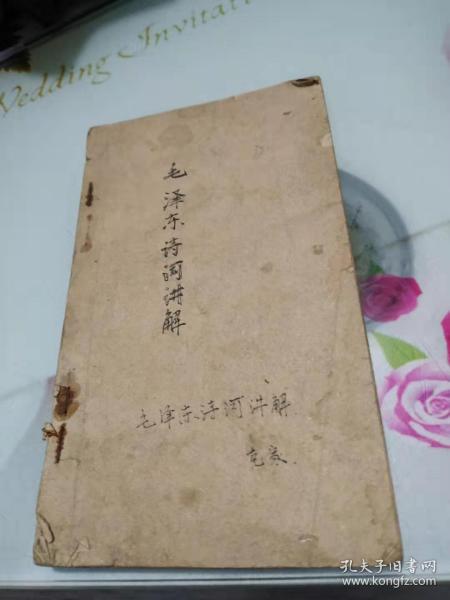 Wedding Invitati
毛泽东诗词讲解
毛泽东诗词讲解
孔夫子旧书网
www.kongfz.com